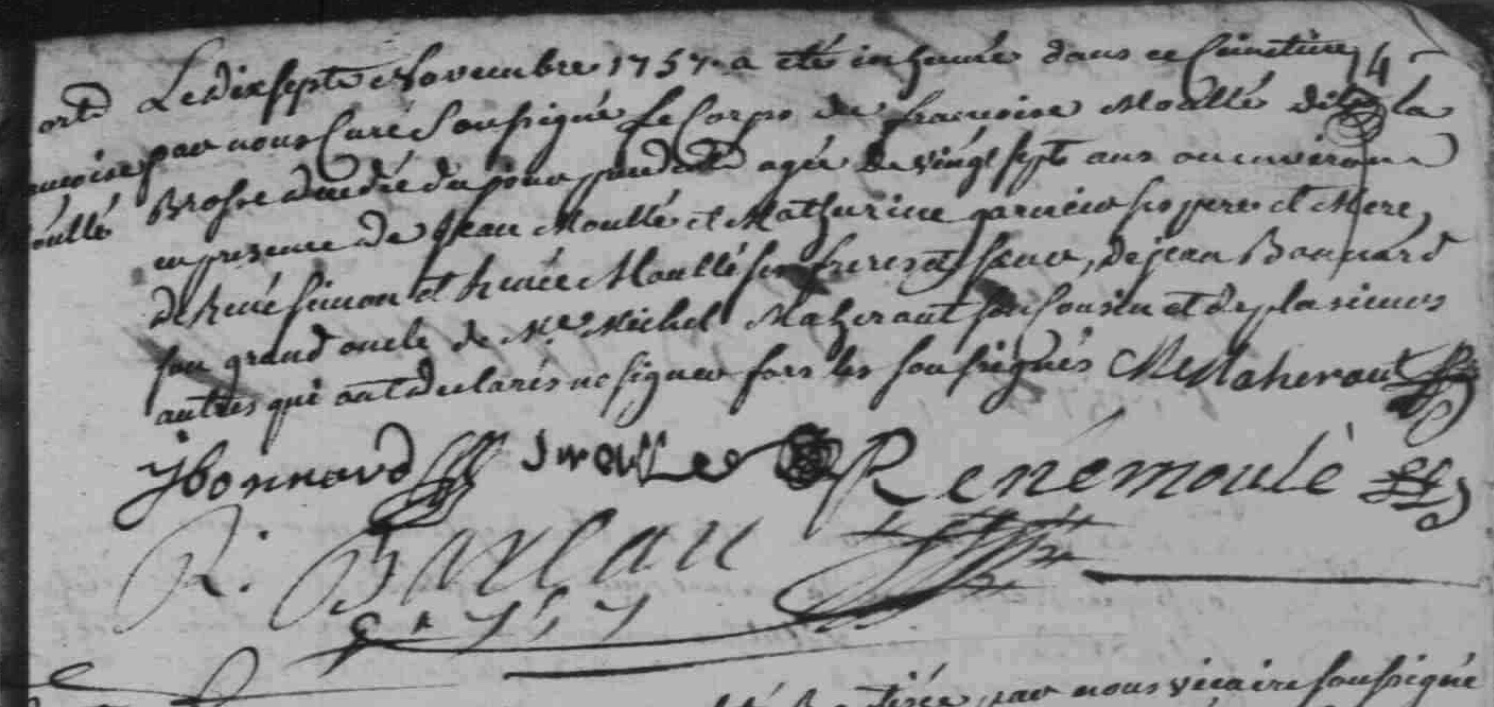 Le dix sept Novembre 1757 a eté inhumée dans ce Cimetiere
par nous Curé Soussigné Le Corps de francoise Moullé de la
Brosse decedée du jour precedent agée de vingt sept ans ou environ
en presence de Jean Moullé et Mathurine garnier ses pere et Mere,
de René simon et Renée Moullé ses freres et soeur, de jean Bonnard
son grand oncle de Me Michel Maheraut son Cousin et de plusieurs
autres qui ont declarés ne signer fors les soussignés Maheraut
jbonnard Renémoulé
R.
par nous vicaire soussigné